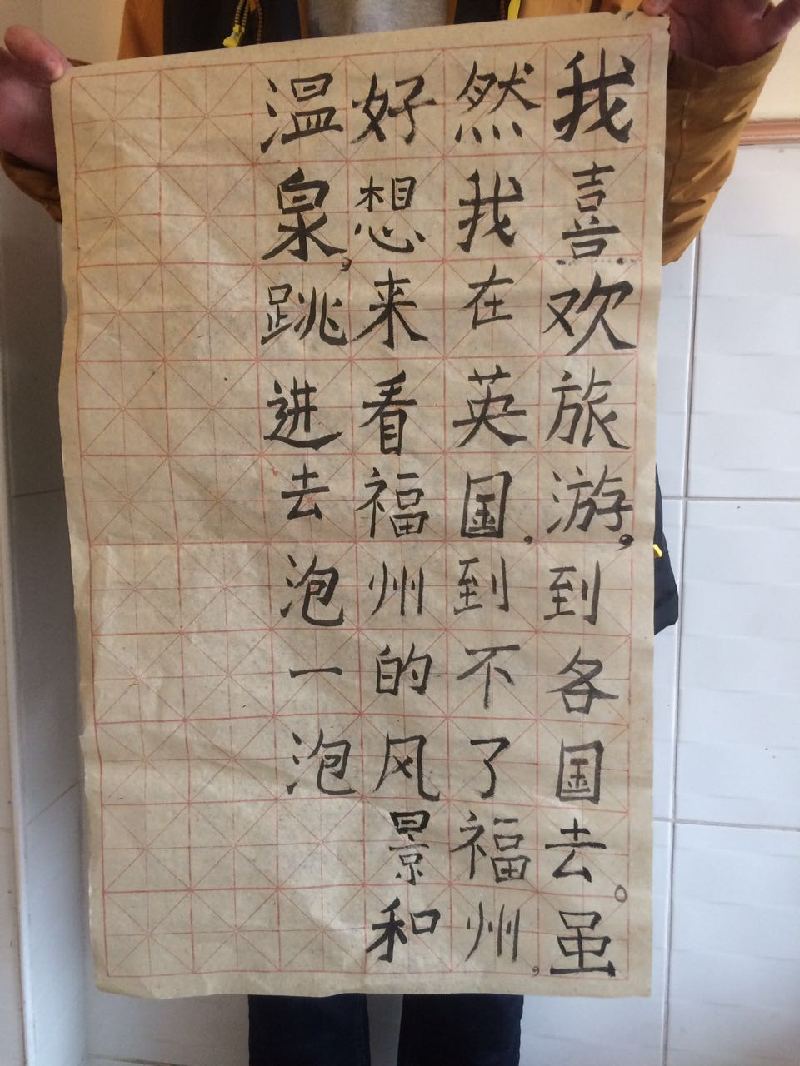 我喜欢旅游，到各国去。虽
然我在英国，到不了福州，
好想来看福州的风景和
温泉，跳进去泡一泡